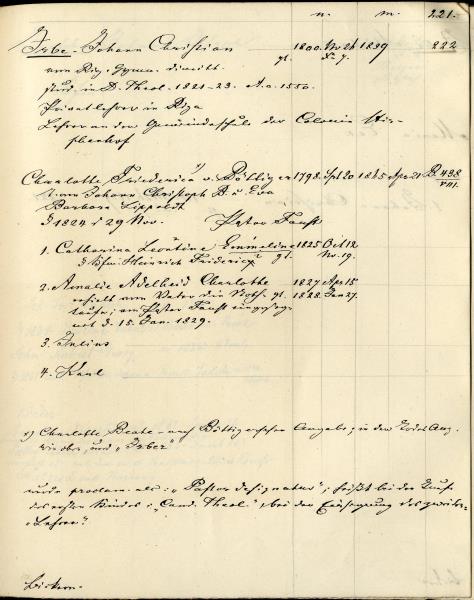 n. m. 221.
Irbe. Johann Christian 1800. Nov 26 1839 222
vom Rig. Gymn. dimitt. gt. Dc 7.
stud. in D. Theol. 1821-23. A.a. 1550.
Privatlehrer in Riga
Lehrer an der Gemeindeschule der Colonie Hir-
schenhof
Charlotte Friederica v. Böttiger 1798. Spt 20 1865 Apr 21 B. 438
T. von Johann Christoph B. u Eva VIII.
Barbara Lippoldt
§ 1824 i 29 Nov. Pastor Faust
1. Catharina Leontine Emmeline 1825 Oct 12
Heinrich Friderici gt. Nv. 19.
2. Amalie Adelheid Charlotte 1827 Apr 15
erhielt vom Vater die Noth- gt. 1828. Jan 27.
taufe; am Pastor Faust eingeseg-
net d. 15. Jan. 1829.
3. Julius
4. Karl
x) Charlotte Beate - nach Böttigerschen Angabe; in der Todes Anz.
wie oben, und "Irber"
wurde proclam. als: "Pastor designatus"; heißt bei der Taufe
des ersten Kindes: "Cand. Theol.", bei der Einsegnung des zweiten:
"Lehrer".